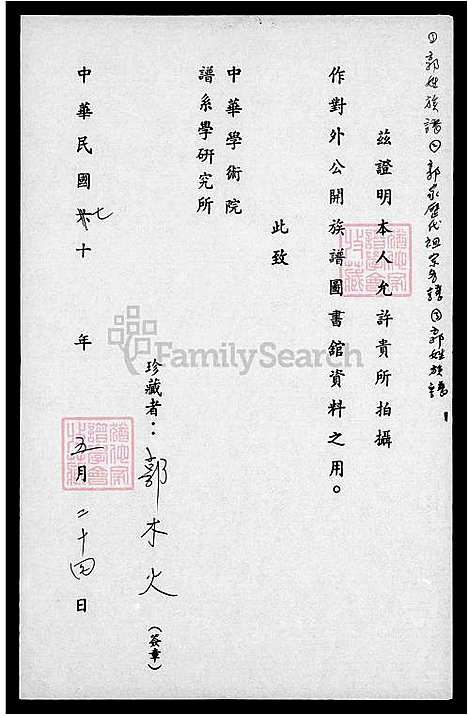 ①郭姓族譜②郭家歷代祖宗名譜③郭姓族譜
茲證明本人允許貴所拍攝
作對外公開族譜圖書舘資料之用。
此致
中華學術院
譜系學研究所
珍藏者：郭木火（簽章）
中華民國七十年五月二十四日
FamilySearch